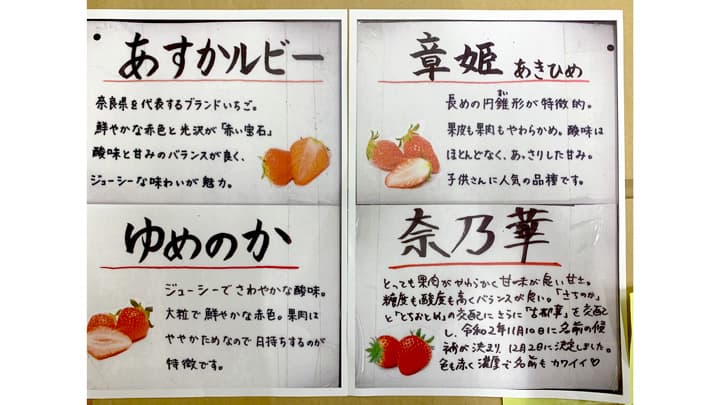 あすかルビー
奈良県を代表するブランドいちご。
鮮やかな赤色と光沢が「赤い宝石」
酸味と甘みのバランスが良く、
ジューシーな味わいが魅力。
章姫 あきひめ
長めの円錐形が特徴的。
すい
果皮も果肉もやわらかめ。酸味は
ほとんどなく、あっさりした甘み。
子供さんに人気の品種です。
ゆめのか
ジューシーでさわやかな酸味。
大粒で鮮やかな赤色。果肉は
ややかためなので日持ちするのが
特徴です。
奈乃華
とっても果肉がやわらかく甘味が良い甘さ。
糖度も酸度も高くバランスが良い。「さちのか」
と「とちおとめ」の交配にさらに「古都華」を交配
し、令和2年11月10日に名前の候
補が決まり、12月2日に決定しました。
色も赤く濃厚で名前もカワイイ♡